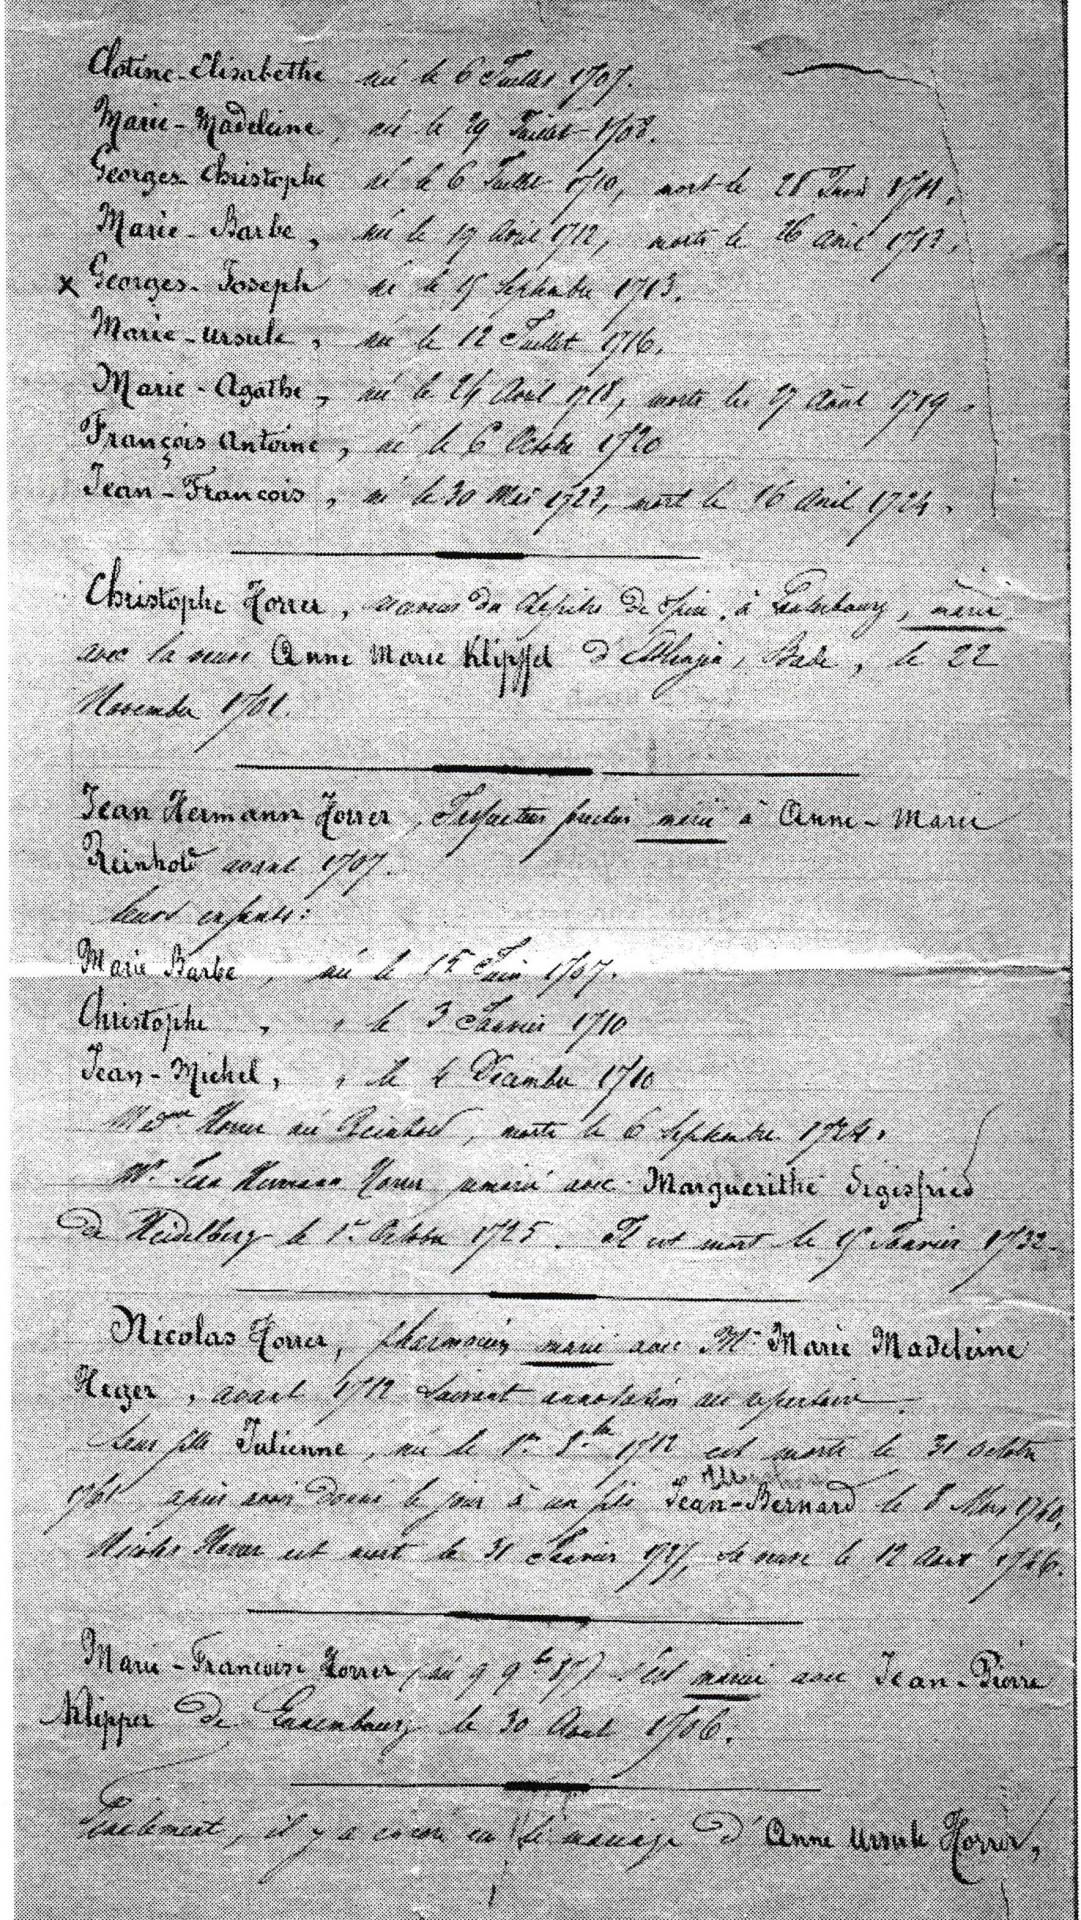 Clotine-Elisabethe née le 6 Juillet 1707.
Marie-Madeleine, née le 29 Juillet 1708.
Georges Christophe né le 6 Juillet 1710, mort le 28 Juin 1711.
Marie-Barbe, née le 17 Avril 1712, morte le 26 Avril 1713.
x Georges-Joseph né le 15 Septembre 1713.
Marie-Ursule, née le 12 Juillet 1716.
Marie-Agathe, née le 24 Avril 1718, morte le 27 Août 1719.
François Antoine, né le 6 Octobre 1720
Jean-François, né le 30 Mai 1723, mort le 16 Avril 1724.
Christophe Horrer, receveur du Chapitre de Spire, à Lauterbourg, marié
avec la veuve Anne Marie Klipffel d' Bade, le 22
Novembre 1701.
Jean Hermann Horrer, marié à Anne-Marie
Reinhold avant 1707.
leurs enfants:
Marie Barbe, née le 15 Juin 1707.
Christophe " " le 3 Janvier 1710
Jean-Michel, " le 4 Décembre 1710
Madme Horrer née Reinhold, morte le 6 Septembre 1724.
Mr. Jean Hermann Horrer remarié avec Marguerithe Sigisfried
de Heidelberg le 1r Octobre 1725. Il est mort le 15 Janvier 1732.
Nicolas Horrer, pharmacien marié avec Me Marie Madeleine
Heger, avant 1712 suivant annotation au répertoire.
Leur fille Julienne, née le 1er 8.bre 1712 est morte le 31 Octobre
1761 après avoir donné le jour à un fils Jean-Bernard le 8 Mars 1740.
Nicolas Horrer est mort le 31 Janvier sa veuve le 12 Août 1746.
Marie-Françoise Horrer (née 9 9bre s'est mariée avec Jean-Pierre
Klipper de Luxembourg le 30 Août 1706.
Finalement, il y a encore eu le mariage d'Anne Ursule Horrer,